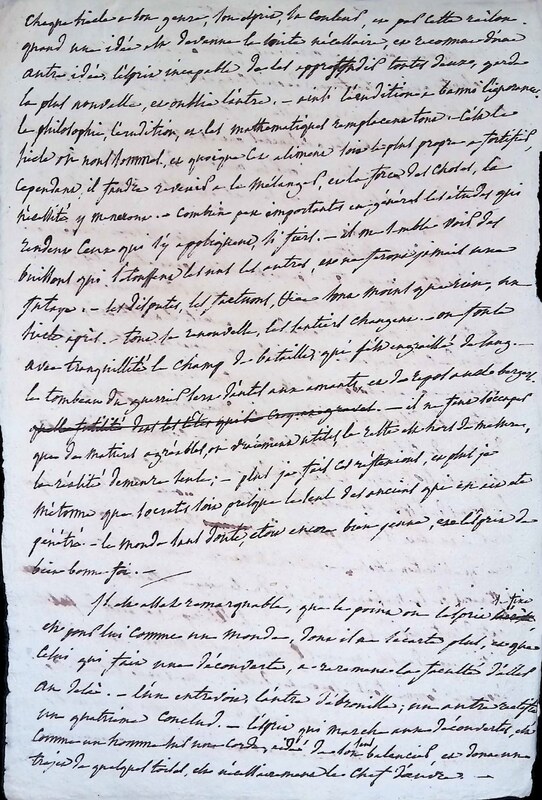 Chaque siècle a son genre, son esprit, sa couleur, et par cette raison
quand une idée est devenue la suite nécessaire, et reconnue d'une
autre idée, l'esprit incapable de les approfondir toutes deux, garde
la plus nouvelle, et oublie l'autre. - ainsi l'érudition a banni l'ignorance.
la philosophie, l'érudition, et les mathématiques remplacent tout. - c'est le
siècle où nous sommes, et quoique cet aliment soit le plus propre a fortifier,
cependant il faudra revenir a le mélanger, et la force des choses, la
nécessité y menera. - combien peu importants en général les études qui
rendent ceux qui s'y appliquent si fiers. - il me semble voir des
buissons qui s'étouffent les uns les autres, et ne feront jamais une
futaye. - les disputes, les factions, sont moins que rien, un
siècle après. - tout se renouvelle, les sentiers changent. - on foule
avec tranquillité le champ de bataille, qui fut engraissé de sang. -
le tombeau du guerrier sert d'autel aux amants, et de repos au berger.
- il ne faut s'occuper
que de matières agréables, ou vraiment utiles, le reste est hors de mesure,
la réalité demeure seule; - plus je fais ces réflexions, et plus je
m'étonne que Socrate soit presque le seul des anciens qui en ait été
pénétré. - le monde sans doute, étoit encore bien jeune, et l'esprit de
bien bonne foi. -
Il est assez remarquable, que le point où l'esprit se fixe
est pour lui comme un monde, dont il ne s'écarte plus, et que
celui qui fait une découverte, a rarement la faculté d'aller
au delà. - l'un entrevoit, l'autre débrouille; un autre rectifie
un quatrième conclud. - l'esprit qui marche aux découvertes, est
comme un homme sur une corde, aidé de son seul balancier, et dont un
trajet de quelques toises, est nécessairement le chef d'œuvre. -